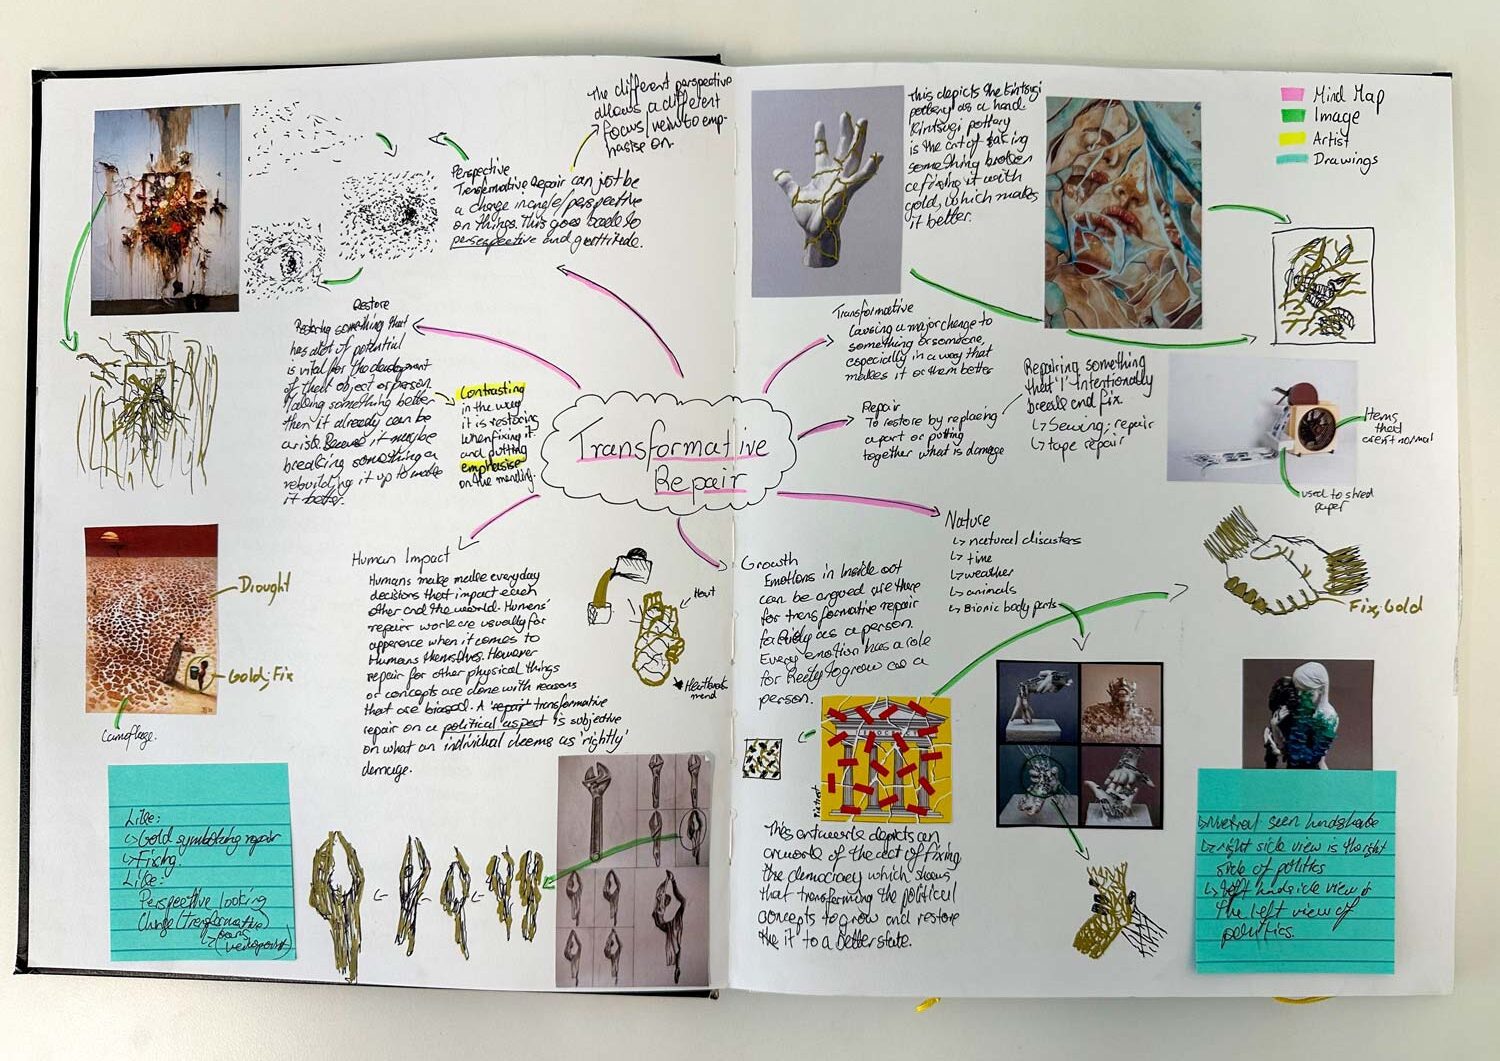 The different perspective
allows a different
focus/view to emp-
hasise on.
Perspective
Transformative Repair can just be
a change in angle/perspective
on things. This goes back to
perspective and gratitude.
Restore
Restoring something that
has alot of potential
is vital for the development
of that object or person.
Making something better
then it already can be
a risk it maybe
breaking something a
rebuilding it up to make
it better.
Contrasting
in the way
it is restoring
when fixing it
and putting
emphasise
on the mending.
Transformative
Repair
Human Impact
Humans make make everyday
decisions that impact each
other and the world. Humans'
repair work are usually for
apperence when it comes to
Humans themselves. However
repair for other physical things
or concepts are done with reasons
that are biased. A 'repair' transformative
repair on a political aspect is subjective
on what an individual deems as 'rightly'
damage.
Drought
Gold; Fix
Camoflage.
Hurt
Like:
Gold symbolising repair
Fixing
Like:
Perspective looking
Change (transformative)
Mind Map
Image
Artist
Drawings
This depicts the Kintsugi
pottery as a hand.
Kintsugi pottery
is the art of taking
something broken
a fixing it with
gold, which makes
it better.
Transformative
Causing a major change to
something or someone,
especially in a way that
makes it or them better
Repair
To restore by replacing
a part or putting
together what is damage
Repairing something
that 'I' intentionally
break and fix
Sewing; repair
tape repair
Items
that
arent normal
used to shred
paper
Nature
natural disasters
time
weather
animals
Bionic body parts
Growth
Emotions in Inside out
can be argued are there
for transformative repair
for Riely as a person.
Every emotion has a role
for Riely to grow as a
person.
Fix, Gold
This artwork depicts an
artwork of the act of fixing
the democracy which shows
that transforming the political
concepts to grow and restore
the it to a better state.
Neutral seen handshake
right side view is the right
side of politics
left handside view is
the left view of
politics.